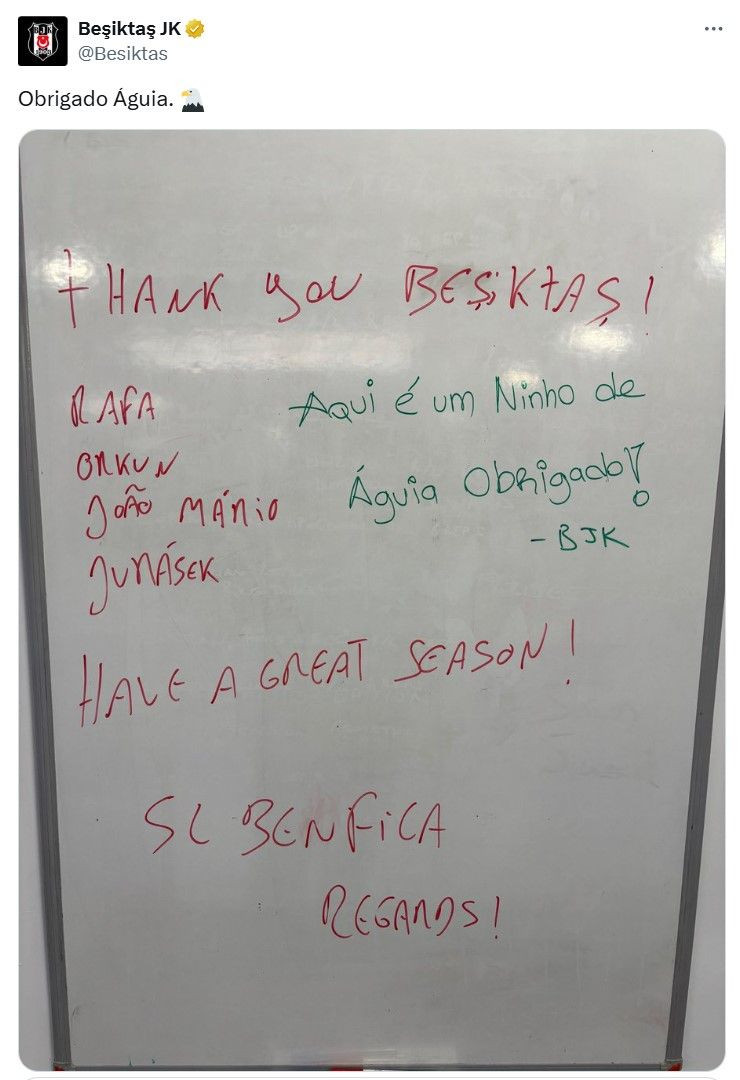 Beşiktaş JK
@Besiktas
Obrigado Águia. 🦅
THANK YOU BEŞiKTAŞ!
RAFA
ORKUN
JOÃO MÁRIO
JURÁSEK
Aqui é um Ninho de
Águia Obrigado!
- BJK
HAVE A GREAT SEASON!
SL BENFiCA
REGARDS!